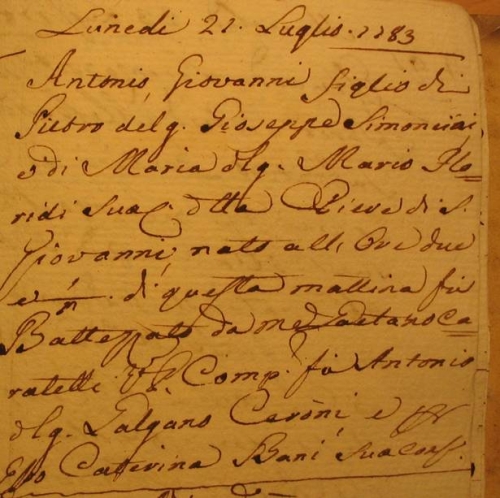 Lunedi 21. Luglio. 1783
Antonio, Giovanni figlio di
Pietro del q. Gioseppe Simoncini,
e di Maria del q. Mario Flo=
ridi sua C. d tta Pieve di S.
Giovanni, nato alle Ore due
e di questa mattina fu
Battezzato da me Gaetano Ca=
ratelli Comp. fu Antonio
del q. Galgano Ceroni, e
Caterina Bani sua cons.